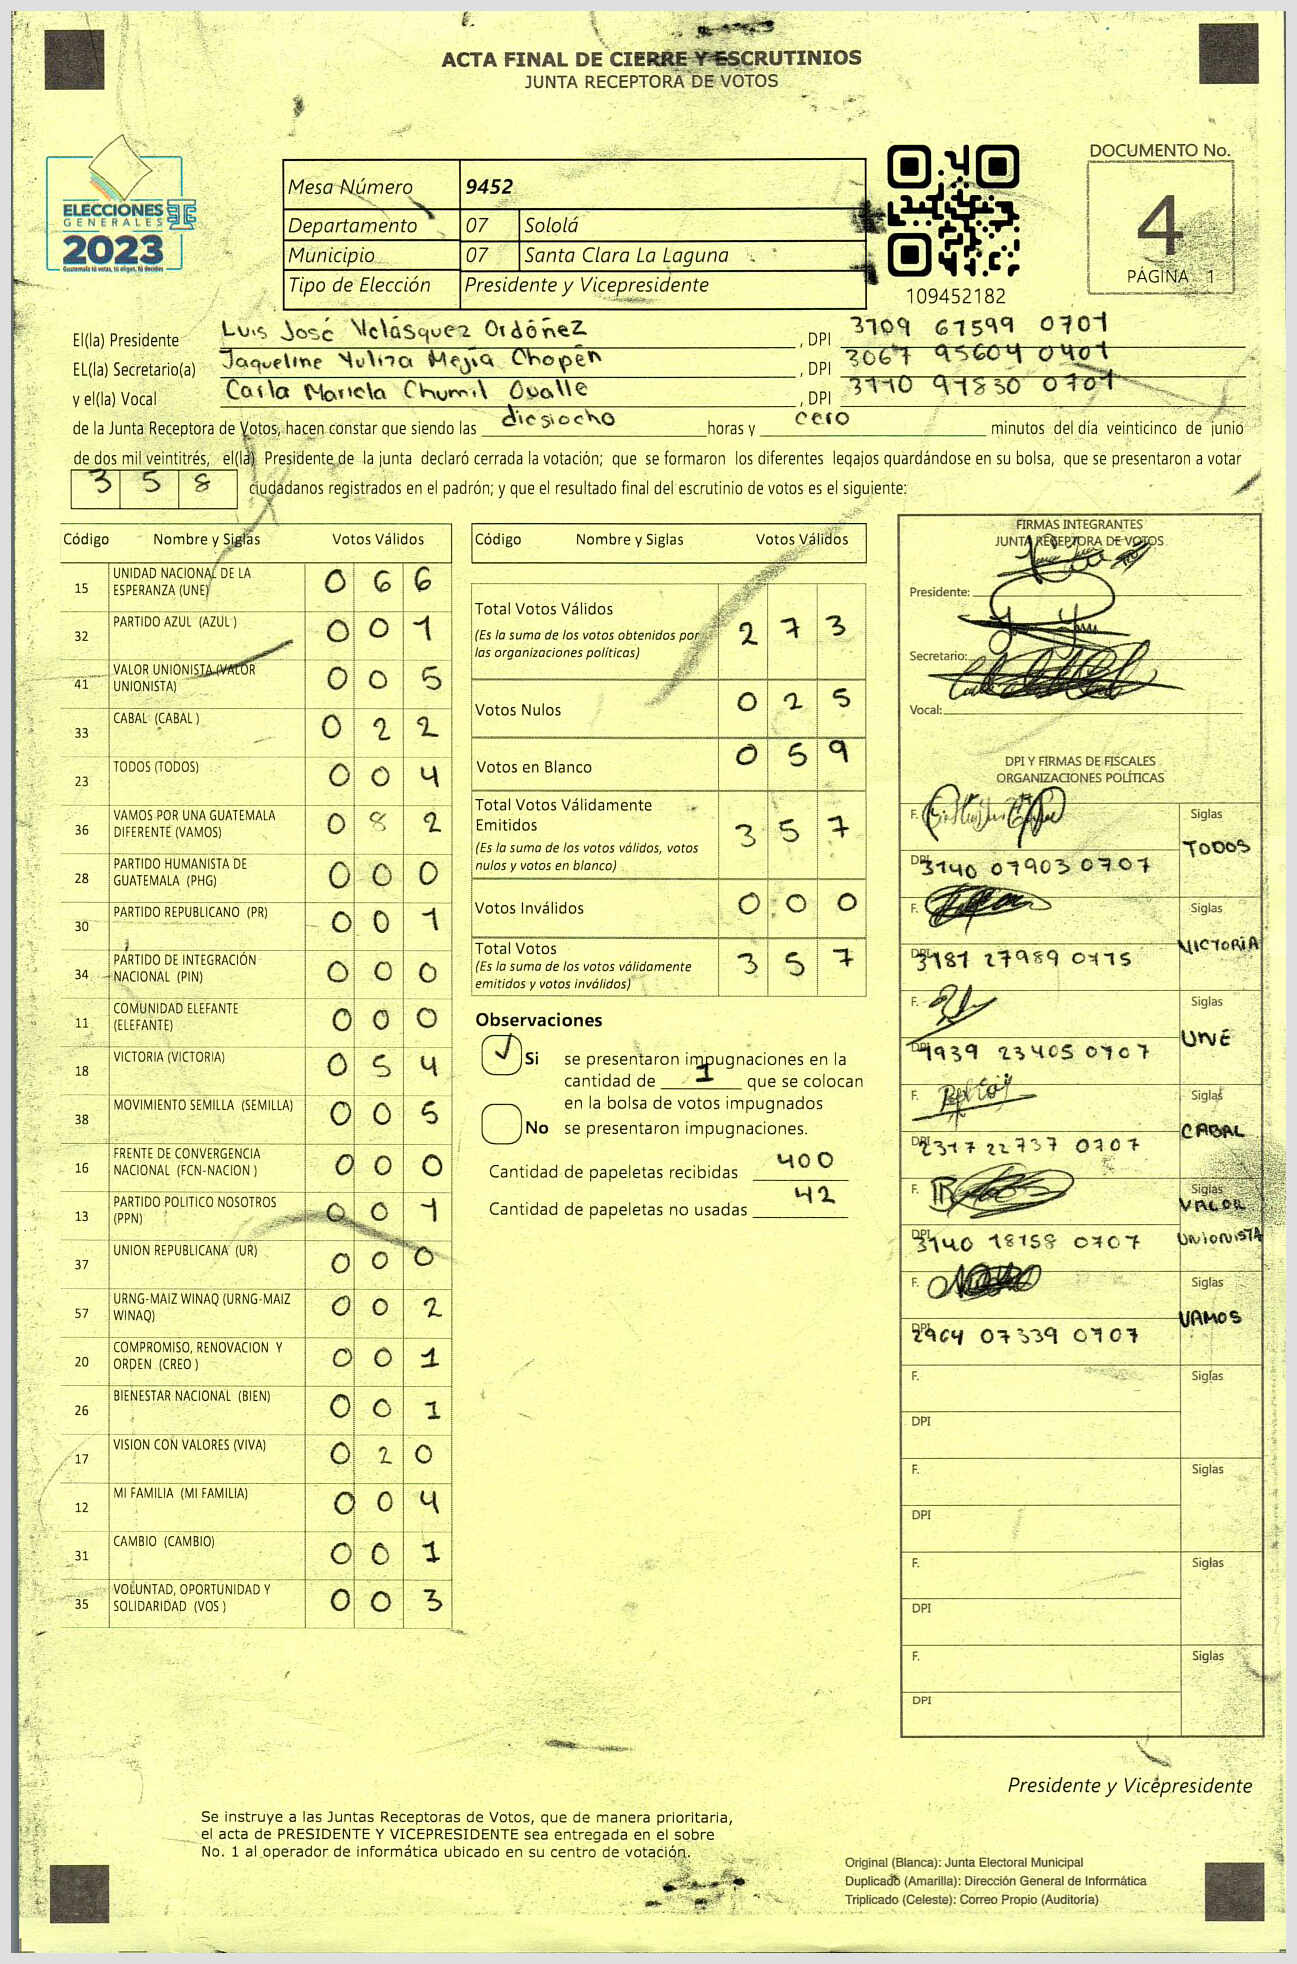 ACTA FINAL DE CIERRE Y ESCRUTINIOS
JUNTA RECEPTORA DE VOTOS
ELECCIONES
GENERALES
2023
Guatemala tú votas, tú eliges, tú decides
Mesa Número 9452
Departamento 07 Sololá
Municipio 07 Santa Clara La Laguna
Tipo de Elección Presidente y Vicepresidente
109452182
DOCUMENTO No.
4
PÁGINA 1
El(la) Presidente Luis José Velásquez Ordóñez , DPI 3109 61599 0701
EL(la) Secretario(a) Jaqueline Yuliza Mejía Chopén , DPI 3067 95604 0401
y el(la) Vocal Carla Mariela Chumil Ovalle , DPI 3110 91830 0701
de la Junta Receptora de Votos, hacen constar que siendo las diesiocho horas y cero minutos del día veinticinco de junio
de dos mil veintitrés, el(la) Presidente de la junta declaró cerrada la votación; que se formaron los diferentes legajos quardándose en su bolsa, que se presentaron a votar
3 5 8 ciudadanos registrados en el padrón; y que el resultado final del escrutinio de votos es el siguiente:
Código Nombre y Siglas Votos Válidos
15 UNIDAD NACIONAL DE LA ESPERANZA (UNE) 0 6 6
32 PARTIDO AZUL (AZUL ) 0 0 1
41 VALOR UNIONISTA (VALOR UNIONISTA) 0 0 5
33 CABAL (CABAL ) 0 2 2
23 TODOS (TODOS) 0 0 4
36 VAMOS POR UNA GUATEMALA DIFERENTE (VAMOS) 0 8 2
28 PARTIDO HUMANISTA DE GUATEMALA (PHG) 0 0 0
30 PARTIDO REPUBLICANO (PR) 0 0 1
34 PARTIDO DE INTEGRACIÓN NACIONAL (PIN) 0 0 0
11 COMUNIDAD ELEFANTE (ELEFANTE) 0 0 0
18 VICTORIA (VICTORIA) 0 5 4
38 MOVIMIENTO SEMILLA (SEMILLA) 0 0 5
16 FRENTE DE CONVERGENCIA NACIONAL (FCN-NACION ) 0 0 0
13 PARTIDO POLITICO NOSOTROS (PPN) 0 0 1
37 UNION REPUBLICANA (UR) 0 0 0
57 URNG-MAIZ WINAQ (URNG-MAIZ WINAQ) 0 0 2
20 COMPROMISO, RENOVACION Y ORDEN (CREO ) 0 0 1
26 BIENESTAR NACIONAL (BIEN) 0 0 1
17 VISION CON VALORES (VIVA) 0 2 0
12 MI FAMILIA (MI FAMILIA) 0 0 4
31 CAMBIO (CAMBIO) 0 0 1
35 VOLUNTAD, OPORTUNIDAD Y SOLIDARIDAD (VOS ) 0 0 3
Código Nombre y Siglas Votos Válidos
Total Votos Válidos 2 7 3
(Es la suma de los votos obtenidos por
las organizaciones políticas)
Votos Nulos 0 2 5
Votos en Blanco 0 5 9
Total Votos Válidamente
Emitidos 3 5 7
(Es la suma de los votos válidos, votos
nulos y votos en blanco)
Votos Inválidos 0 0 0
Total Votos 3 5 7
(Es la suma de los votos válidamente
emitidos y votos inválidos)
Observaciones
Si se presentaron impugnaciones en la
cantidad de 1 que se colocan
en la bolsa de votos impugnados
No se presentaron impugnaciones.
Cantidad de papeletas recibidas 400
Cantidad de papeletas no usadas 42
FIRMAS INTEGRANTES
JUNTA RECEPTORA DE VOTOS
Presidente:
Secretario:
Vocal:
DPI Y FIRMAS DE FISCALES
ORGANIZACIONES POLÍTICAS
F. Siglas
TODOS
DPI 3140 07903 0707
F. Siglas
VICTORIA
DPI 3181 27989 0715
F. Siglas
UNE
DPI 1939 23405 0707
F. Siglas
CABAL
DPI 2317 22737 0707
F. Siglas
VALOR
UNIONISTA
DPI 3140 18158 0707
F. Siglas
VAMOS
DPI 2964 07339 0707
F. Siglas
DPI
F. Siglas
DPI
F. Siglas
DPI
F. Siglas
DPI
Presidente y Vicepresidente
Se instruye a las Juntas Receptoras de Votos, que de manera prioritaria,
el acta de PRESIDENTE Y VICEPRESIDENTE sea entregada en el sobre
No. 1 al operador de informática ubicado en su centro de votación.
Original (Blanca): Junta Electoral Municipal
Duplicado (Amarilla): Dirección General de Informática
Triplicado (Celeste): Correo Propio (Auditoría)